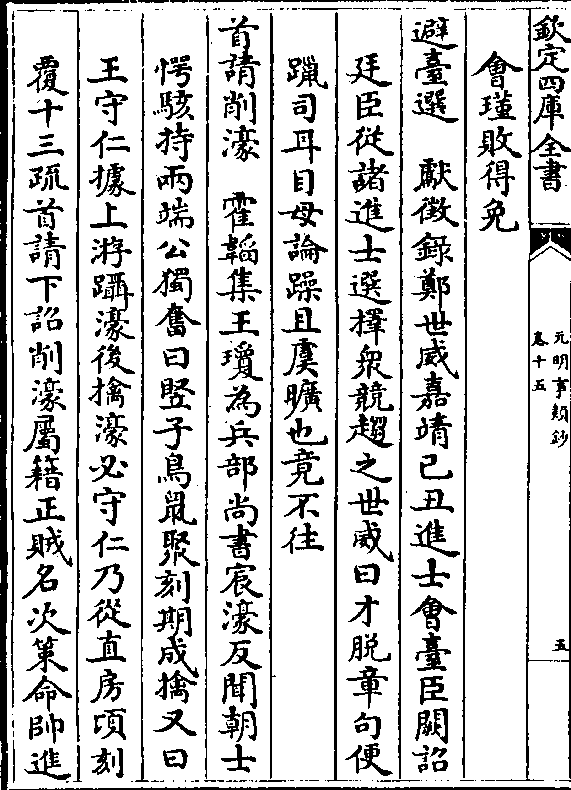 欽定四庫全書
元明事類鈔
卷十五
五
會瑾敗得免
避臺選　獻徵錄鄭世威嘉靖己丑進士會臺臣闕詔
廷臣從諸進士選擇衆競趨之世威曰才脱章句便
躐司耳目毋論躁且虞曠也竟不往
首請削濠　霍韜集王瓊為兵部尚書宸濠反聞朝士
愕駭持兩端公獨奮曰豎子鳥鼠聚刻期成擒又曰
王守仁據上游躡濠後擒濠必守仁乃從直房頃刻
覆十三疏首請下詔削濠屬籍正賊名次第命帥進